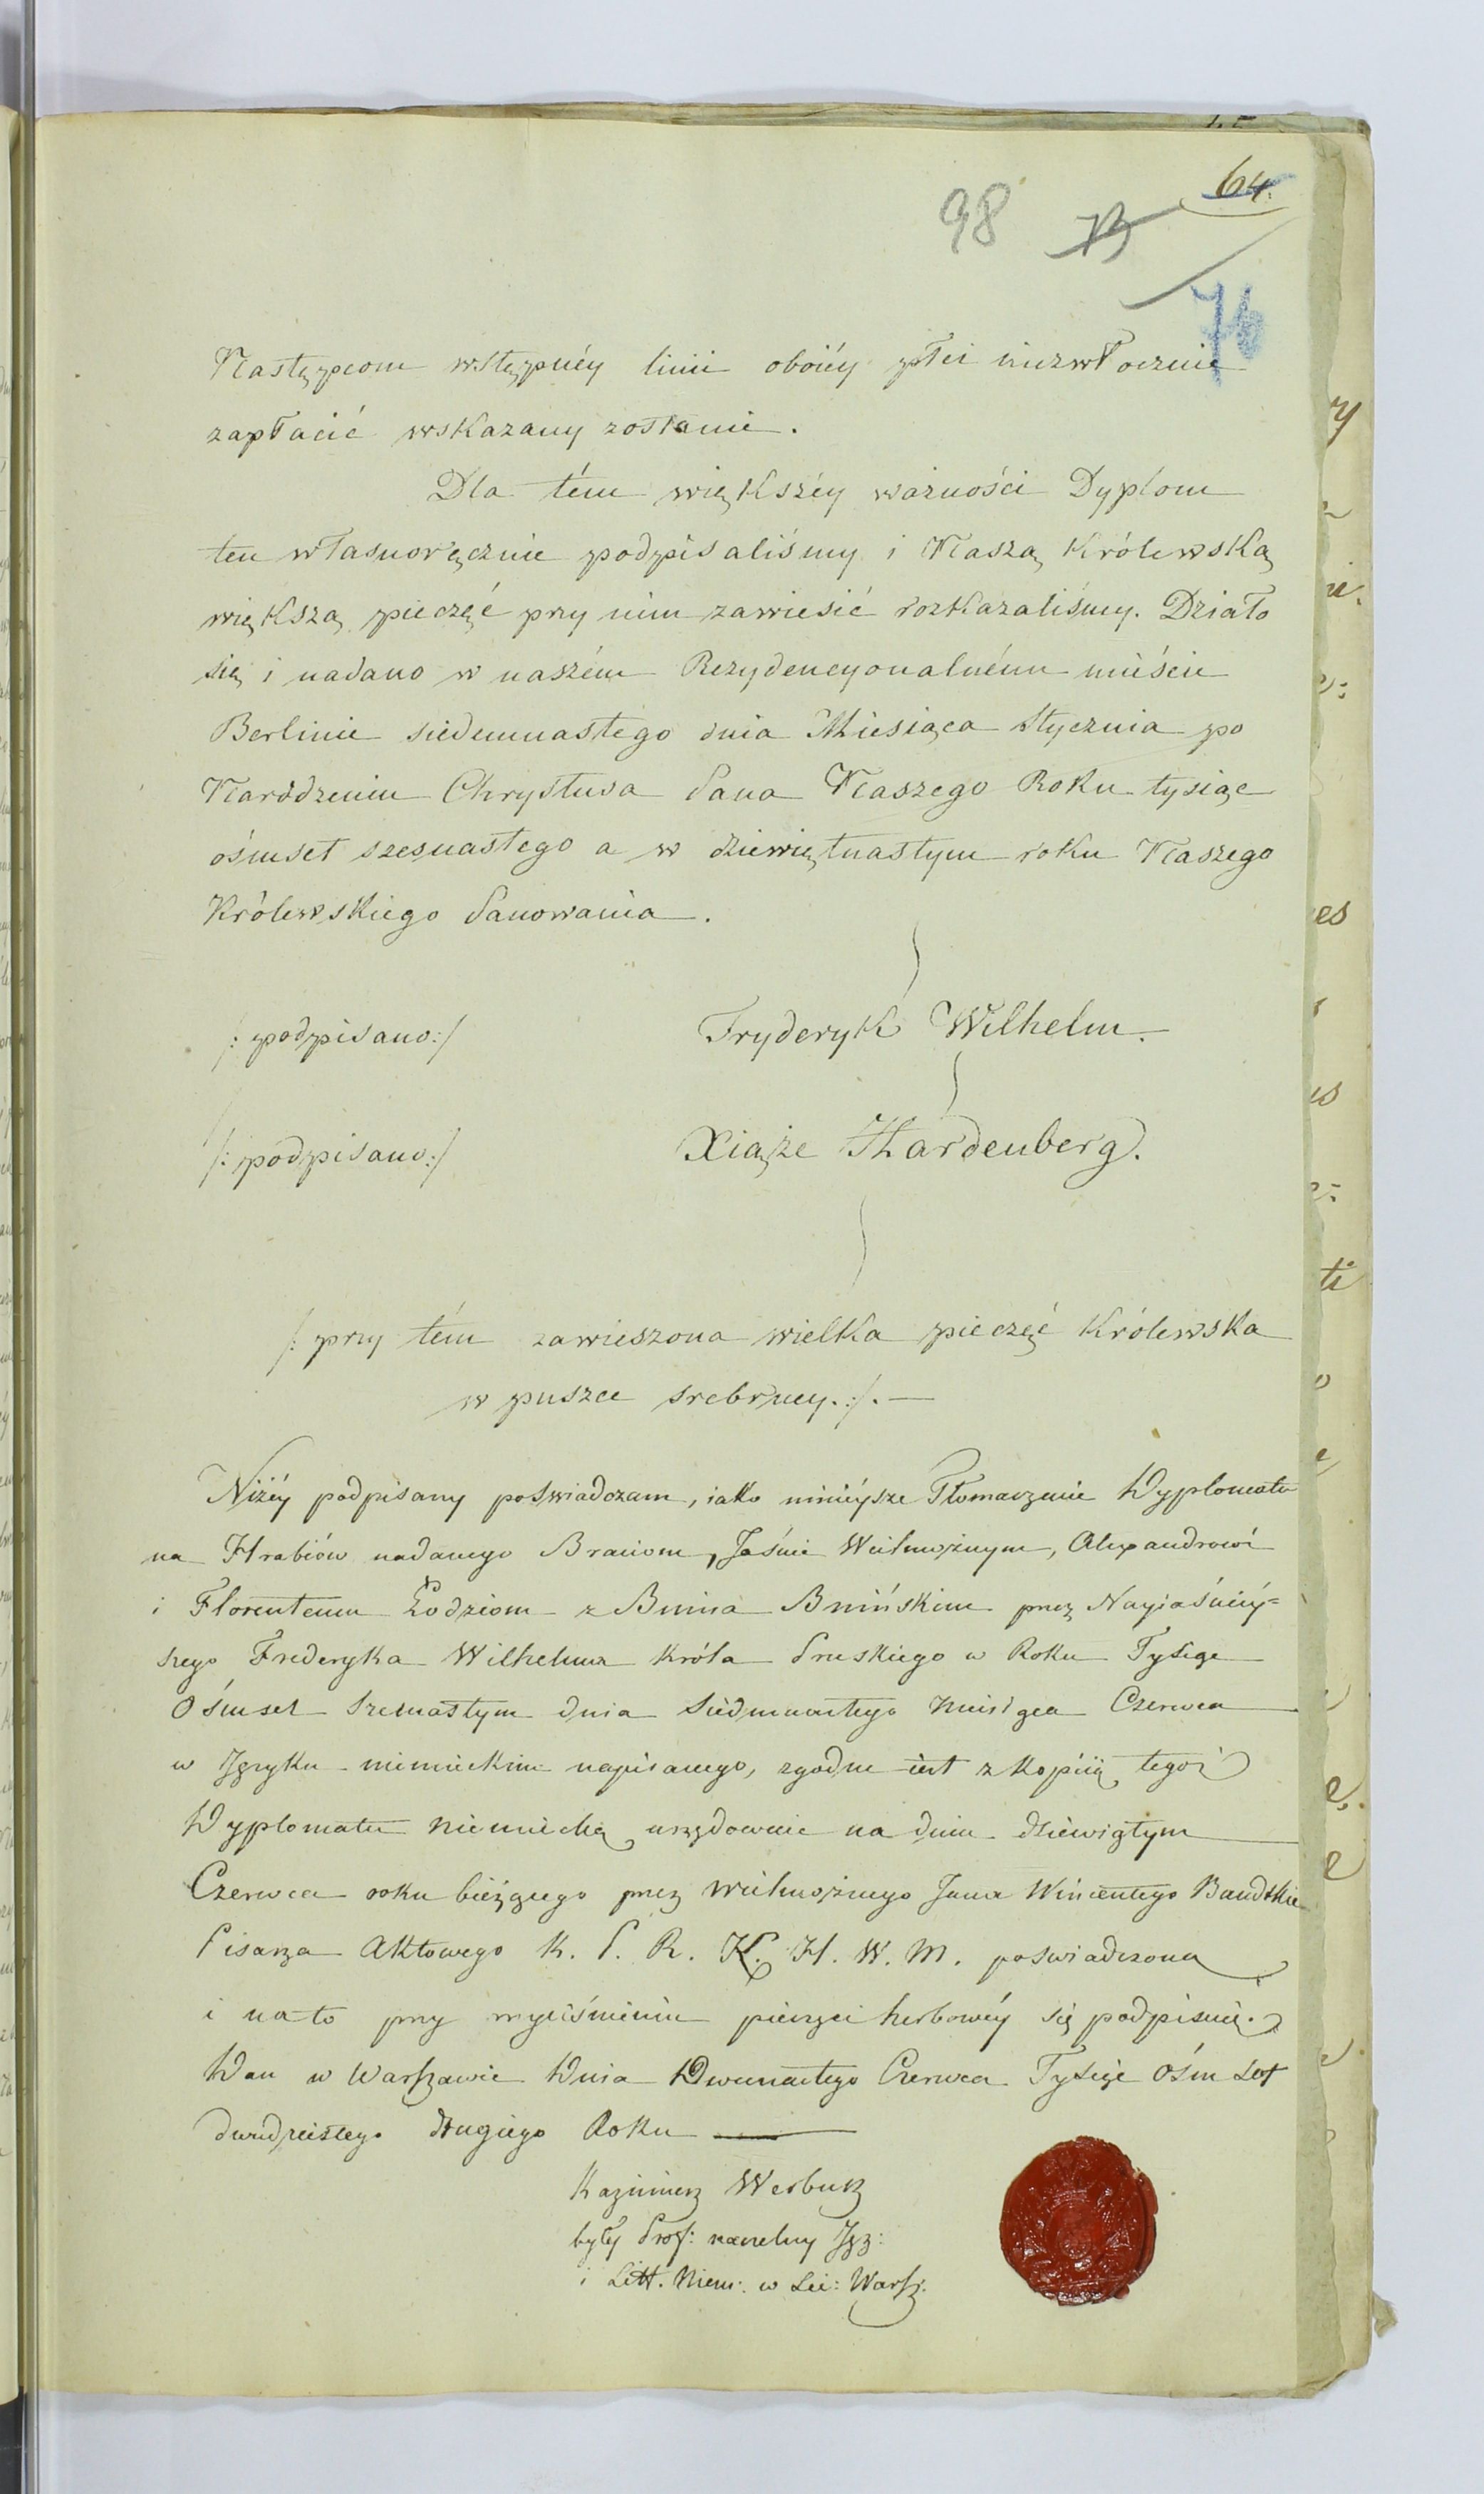 98 73 64.
76
Następcom wstępnéy linii oboiéy płci niezwłocznie
zapłacić wskazany zostanie.
Dla tém większéy ważności Dyplom
ten własnoręcznie podpisaliśmy i Naszą Królewską
większą pieczęć przy nim zawiesić rozkazaliśmy. Działo
się i nadano w naszém Rezydencyonalném mieście
Berlinie siedemnastego dnia Miesiąca Stycznia po
Narodzeniu Chrystusa Pana Naszego Roku tysiąc
ośmset szesnastego a w dziewiętnastym roku Naszego
Królewskiego Panowania.
/: podpisano:/ Fryderyk Wilhelm.
/: podpisano:/ Xiąże Hardenberg.
/: przy tém zawieszona wielka pieczęć Królewska
w puszce srebrney. :/. —
Niżéy podpisany poswiadczam, iako ninieysze Tłomaczenie Dyplomatu
na Hrabiów nadanego Braciom, Jaśnie Wielmożnym, Alexandrowi
i Florentemu Łodziom z Bnina Bnińskim przez Nayiaśniéy=
szego Frederyka Wilhelma Króla Pruskiego w Roku Tysiąc
Ośmset Szesnastym dnia Siedmnastego Miesiąca Czerwca
w Języku niemieckim napisanego, zgodne iest z kopiią tegoż
Dyplomatu niemiecką urzędownie na dniu dziewiątym
Czerwca roku bieżącego przez Wielmożnego Jana Wincentego Bandtkie
Pisarza Aktowego K. P. R. K. H. W. M. poswiadczona
i na to przy wyciśnieniu pieczęci herbowéy się podpisuię.
Dan w Warszawie Dnia Dwunastego Czerwca Tysiąc Ośm Set
dwudziestego drugiego Roku —
Kazimierz Werbusz
były Prof: naczelny Jęz:
i Litt. Niem: w Lic: Warsz.